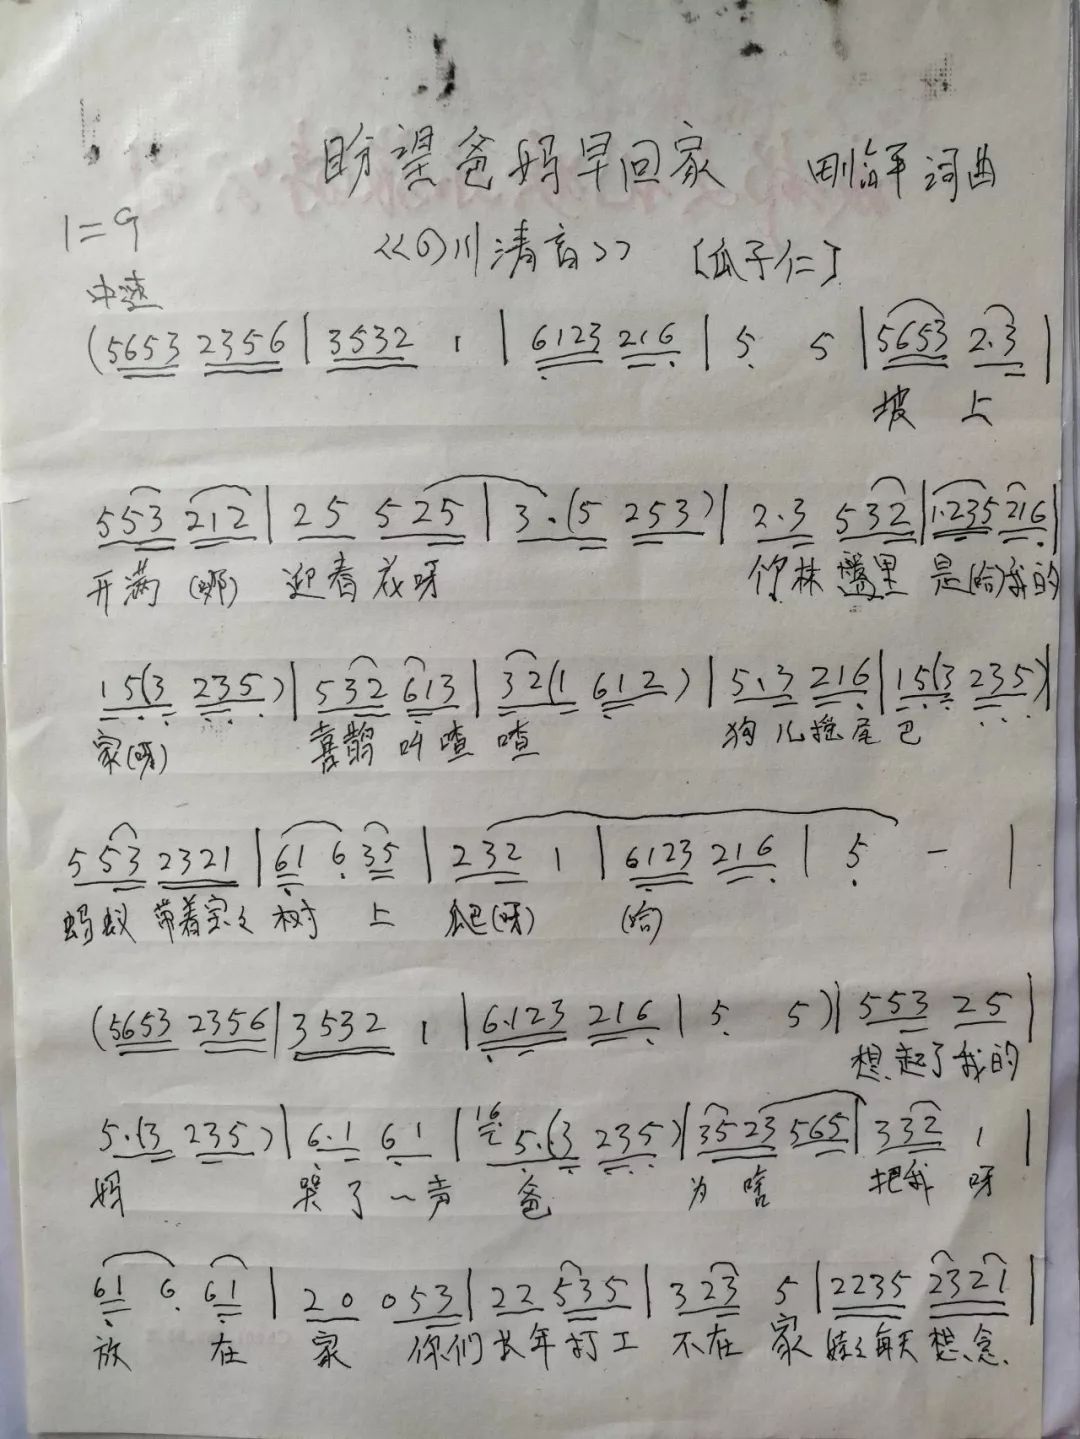 盼望爸妈早回家 词曲
1=G
《四川清音》 [瓜子仁]
中速
(5653 2356 | 3532 1 | 6123 216 | 5 5 | 5653 2.3 |
坡 上
553 212 | 25 525 | 3.(5 253) | 2.3 532 | 1.235 216 |
开满(哪) 迎春花呀 竹林盤里 是(哈)我的
15(3 235) | 532 613 | 32(1 612) | 5.3 216 | 15(3 235) |
家(呀) 喜鹊叫喳喳 狗儿摇尾巴
553 2321 | 61 6 35 | 232 1 | 6123 216 | 5 - |
蚂蚁 带着宝々 树 上 爬(呀) (哈)
(5653 2356 | 3532 1 | 6.123 216 | 5 5) | 553 25 |
想起了我的
5.(3 235) | 6.1 61 | 16 5.(3 235) | 3523 565 | 332 1 |
妈 哭了一声 爸 为啥 把我 呀
61 6 61 | 20 053 | 22 535 | 323 5 | 2235 2321 |
放 在 家 你们长年打工 不在家 娃々每天想念